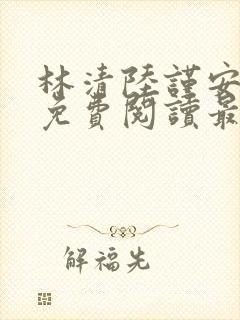 林清陸謹安
免費閱讀最
解福先